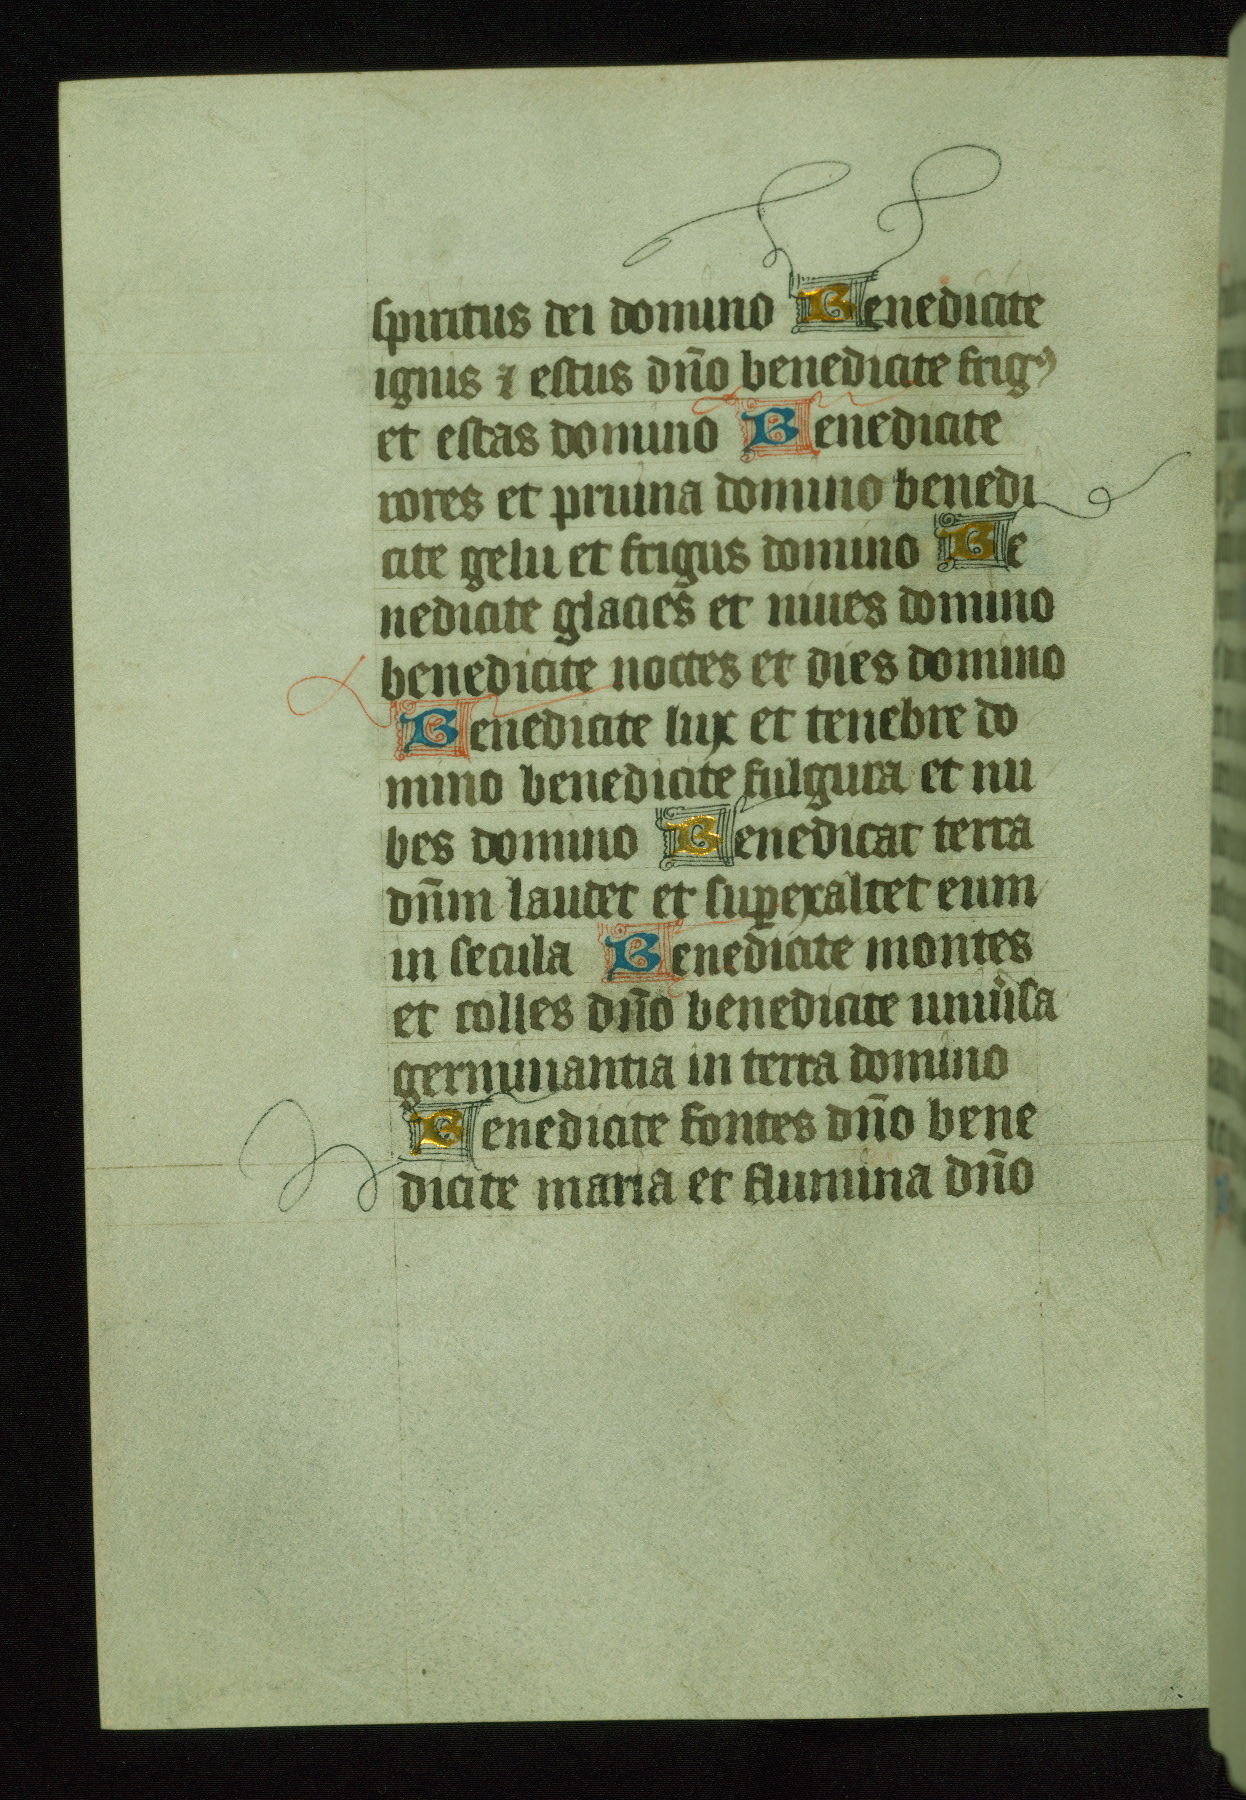 spiritus dei domino Benedicite
ignis ⁊ estus dño benedicite frigꝰ
et estas domino Benedicite
rores et pruina domino benedi
cite gelu et frigus domino Be
nedicite glacies et niues domino
benedicite noctes et dies domino
Benedicite lux et tenebre do
mino benedicite fulgura et nu
bes domino Benedicat terra
dñm laudet et suꝑexaltet eum
in secula Benedicite montes
et colles dño benedicite uniũsa
germinantia in terra domino
Benedicite fontes dño bene
dicite maria et flumina dño